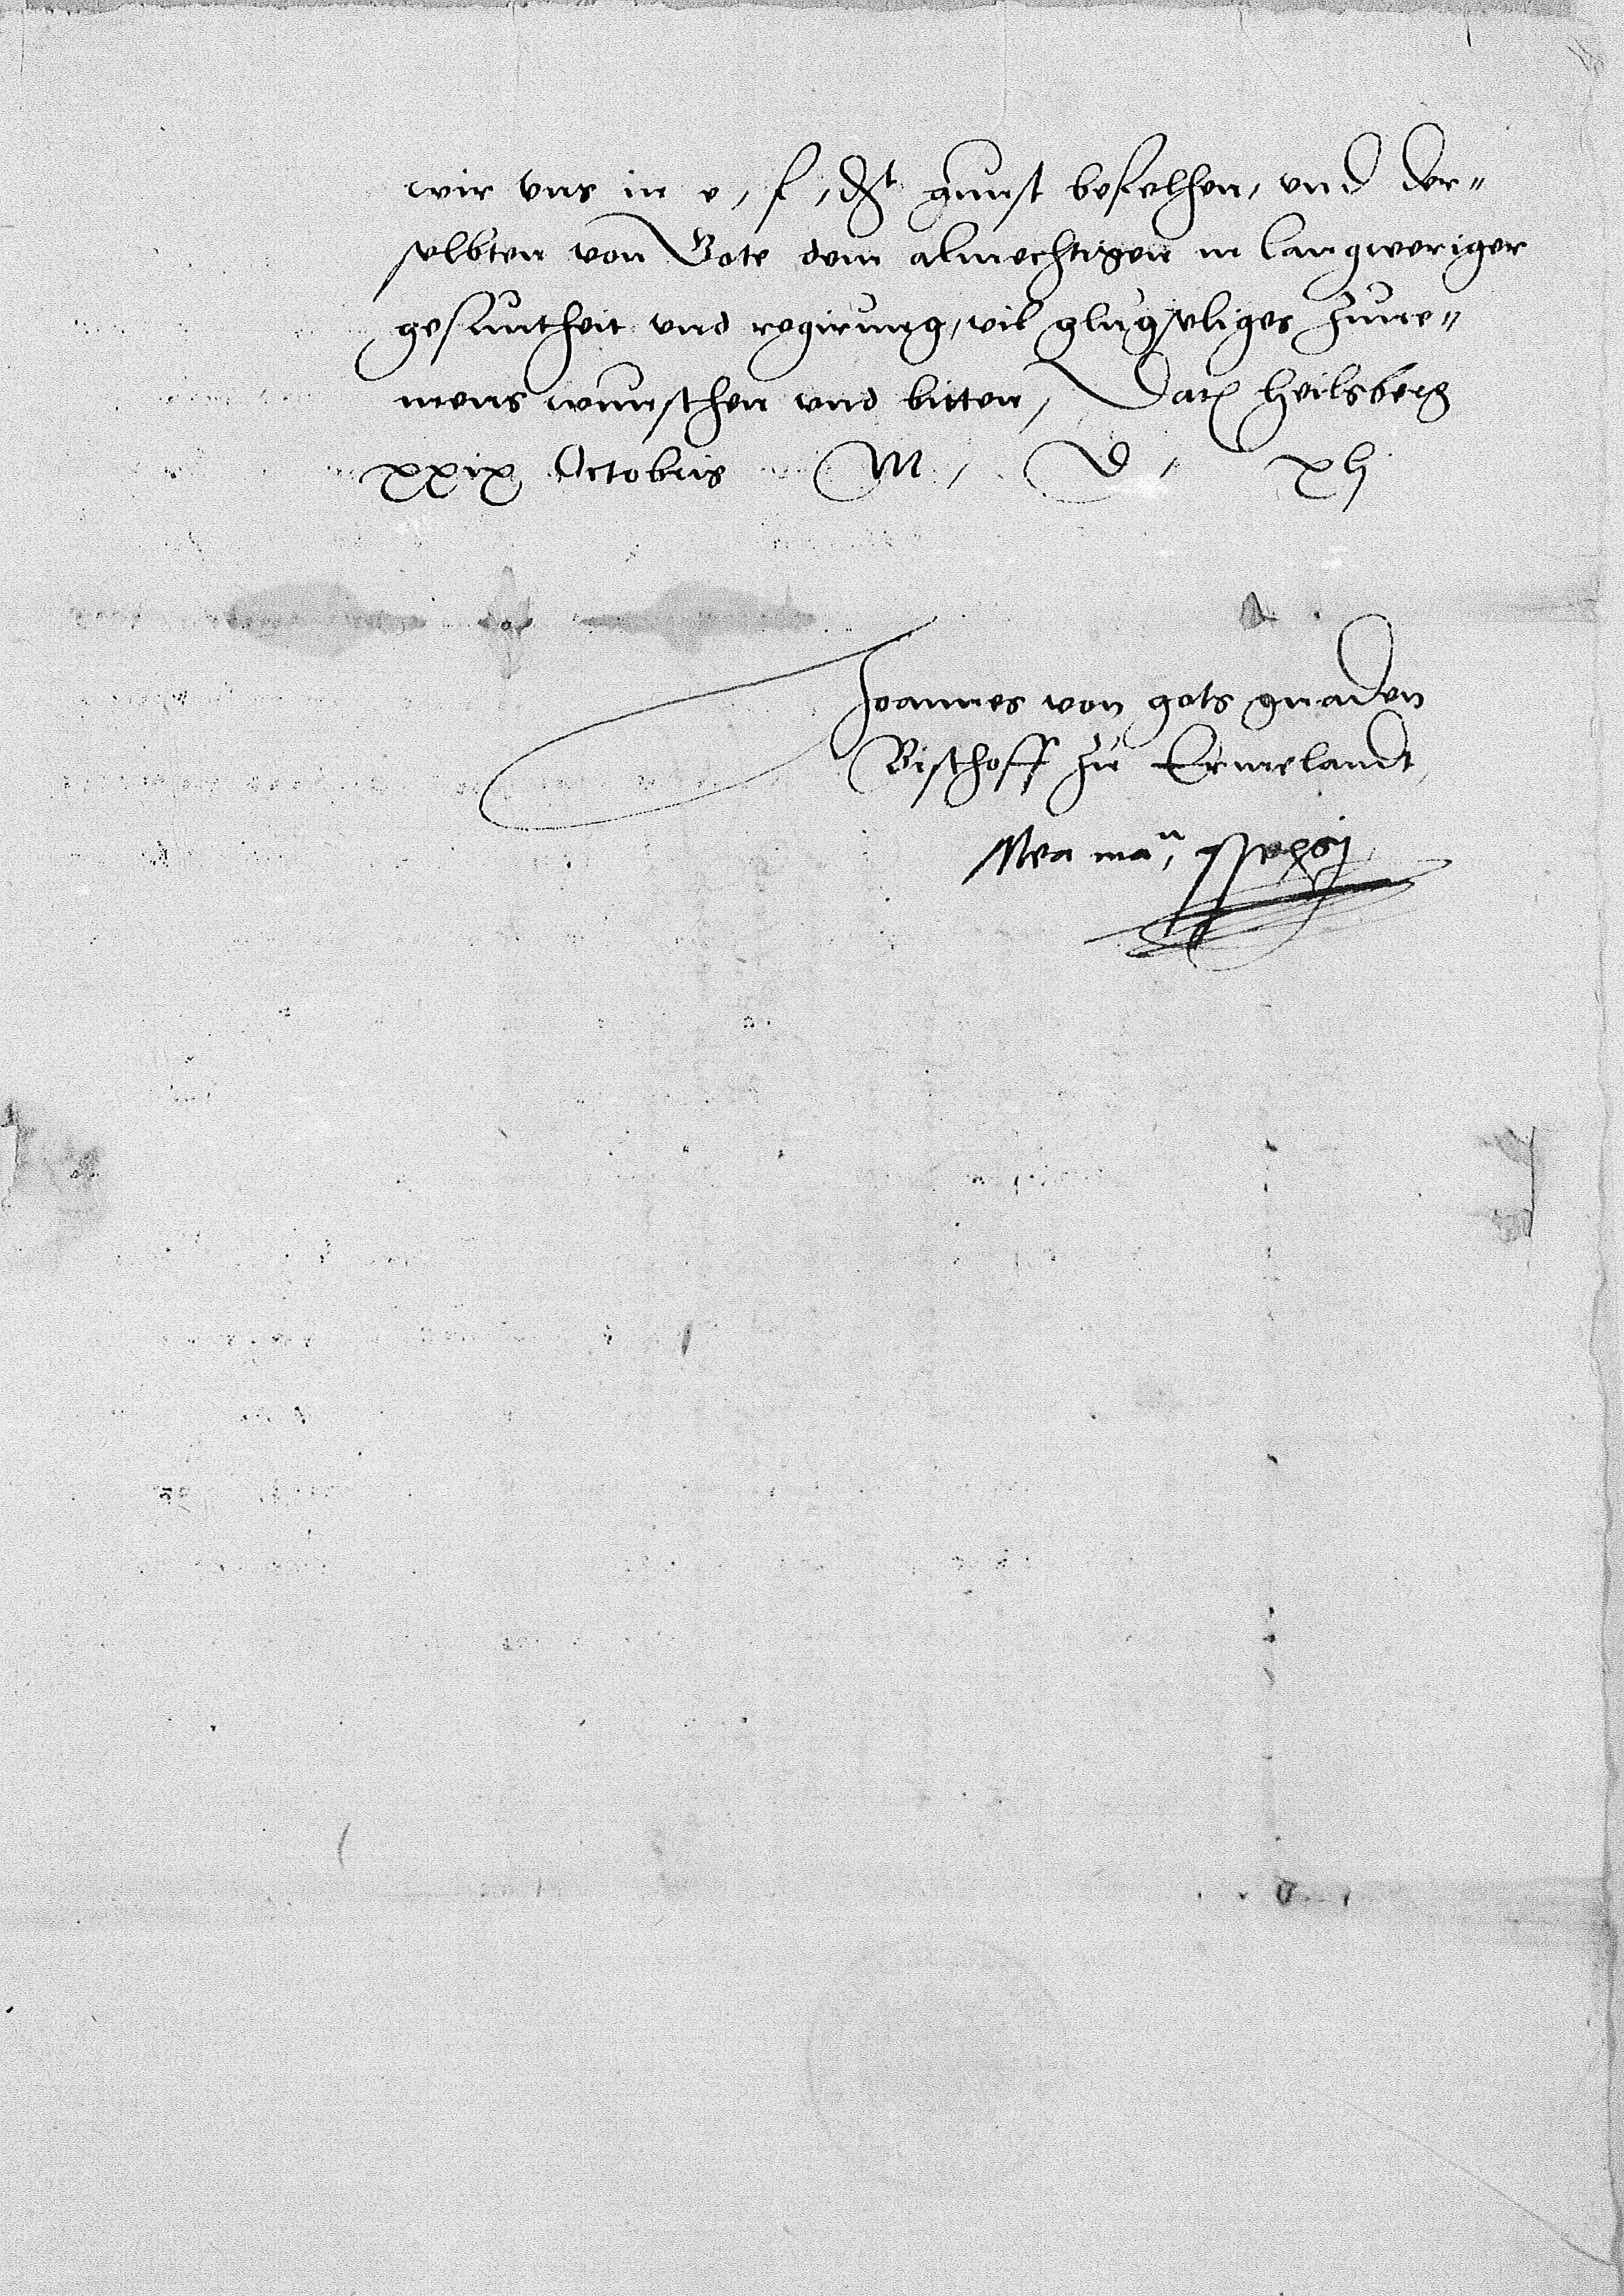 wir vns in e, f, dht gunst befelhen, vnd der=
selbten von Gote dem almechtigen in langweriger
gesuntheit vnd regirung, vil glugseliges zune=
mens wunschen vnd bitten, Dat Heilsberg
xxix Octobris M, D, xlj
Joannes von gots gnaden
Bischoff zu Ermelandt,
Mea manu